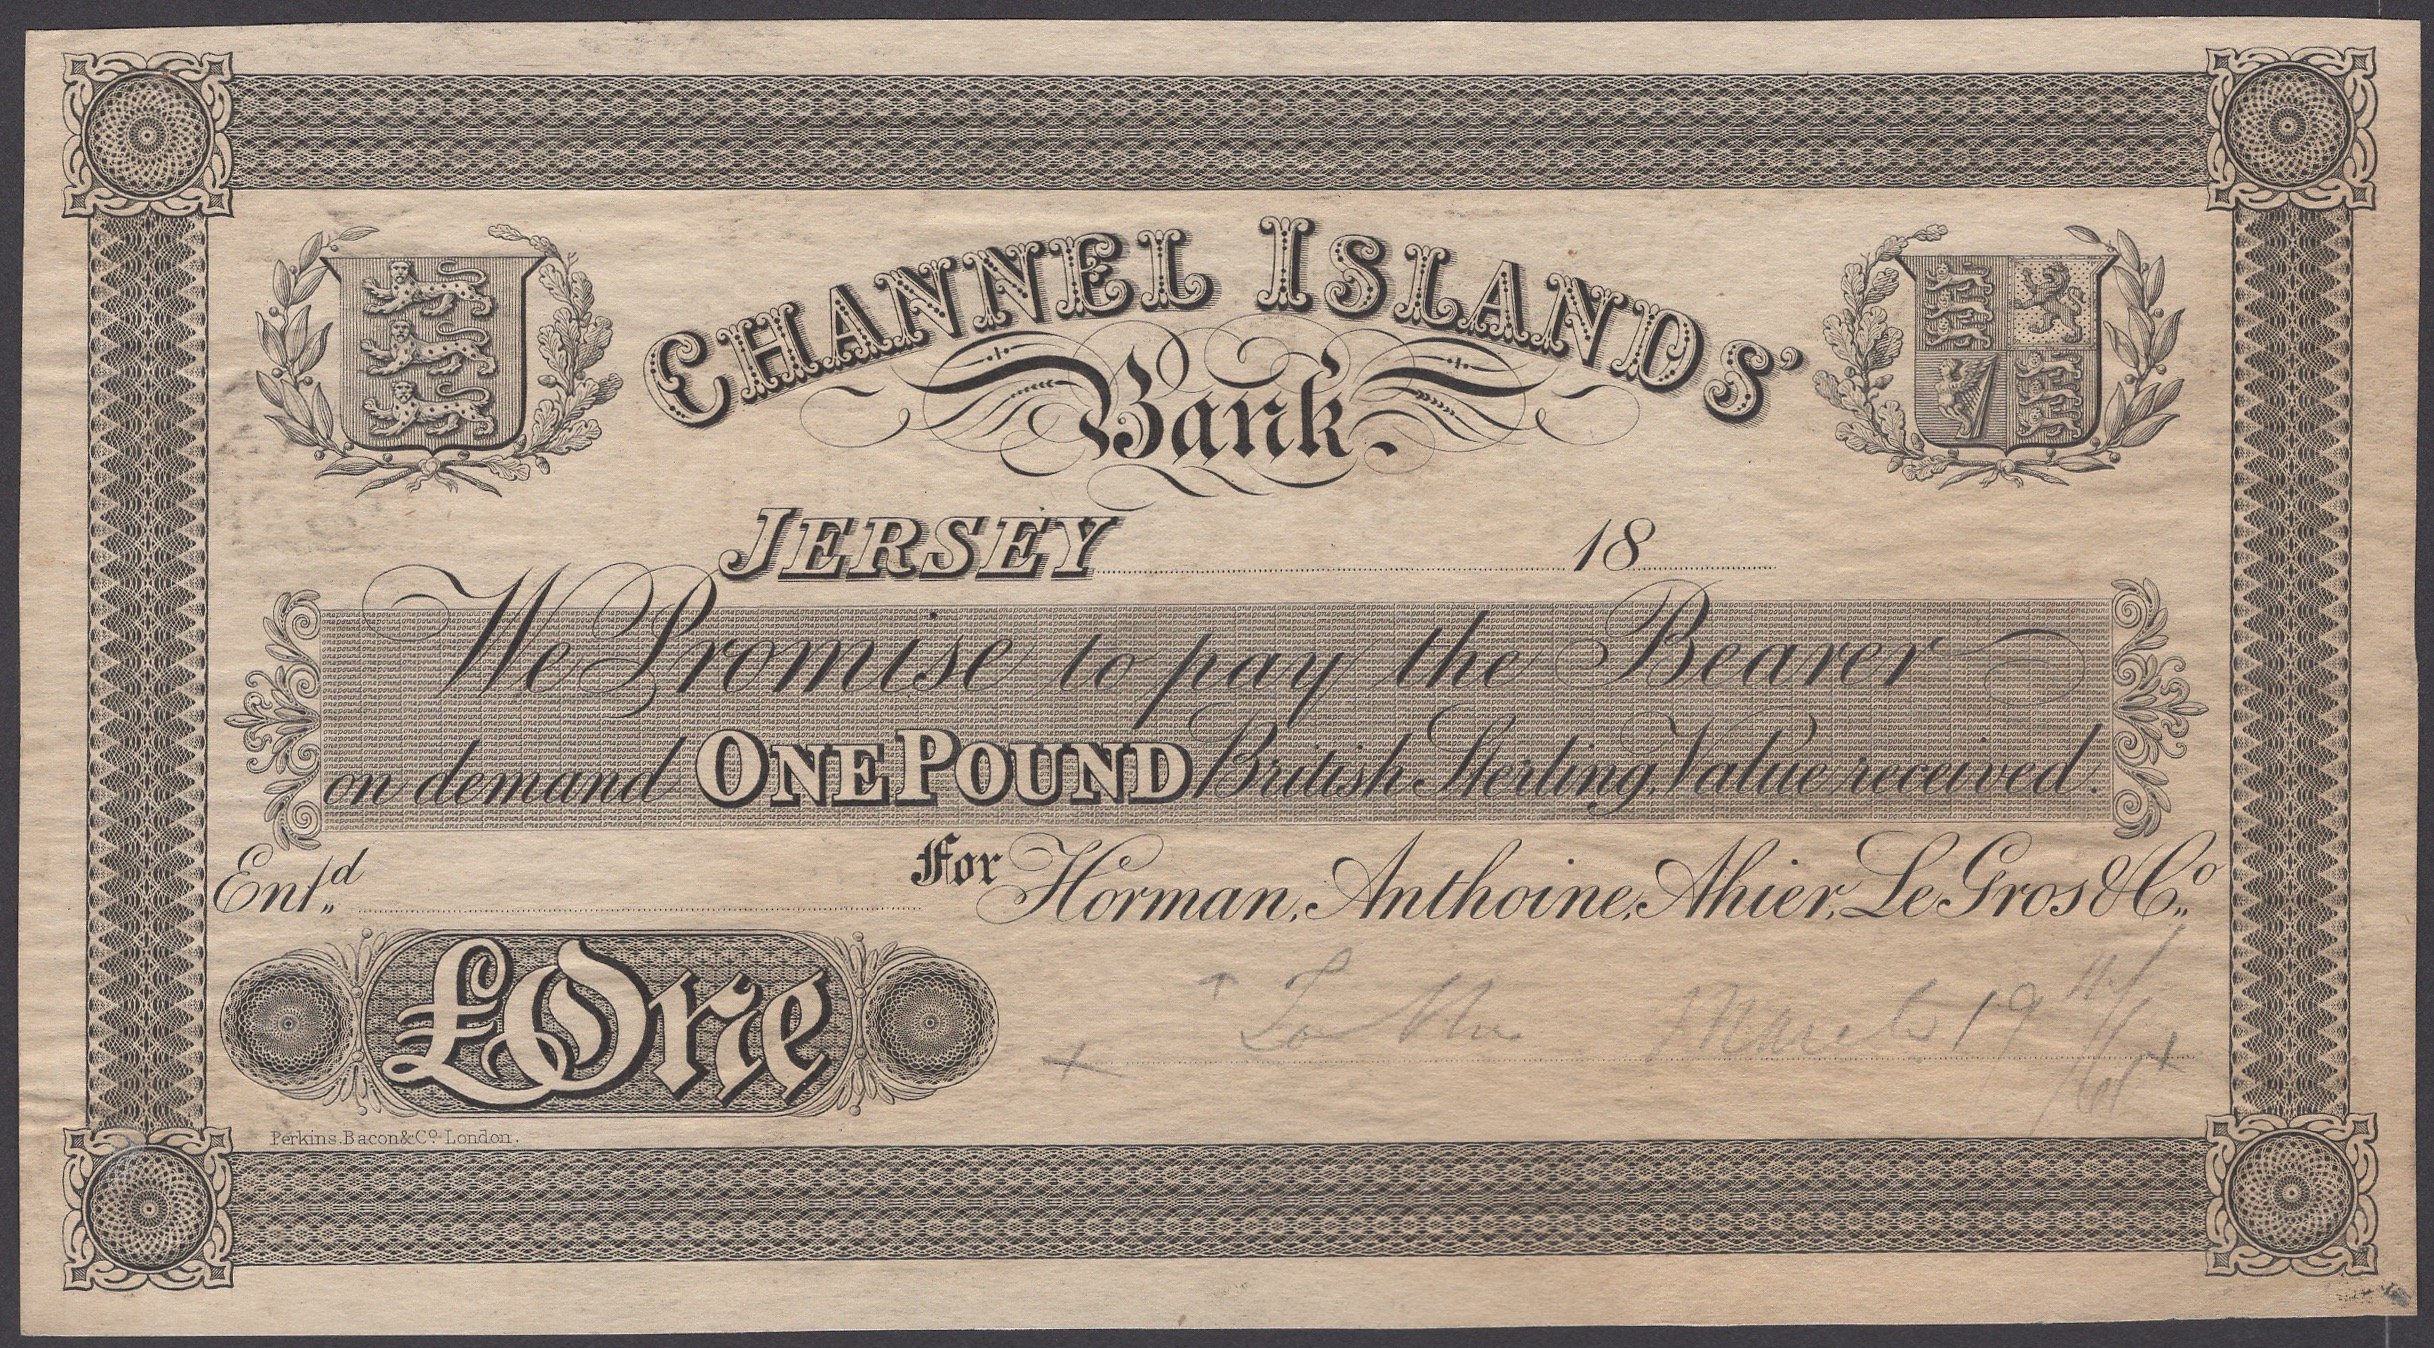 CHANNEL ISLANDS'
Bank.
JERSEY 18
We Promise to pay the Bearer
on demand ONE POUND British Sterling, Value received.
Ent,,d
For Horman, Anthoine, Ahier, Le Gros & Co,,
March 19
£One
Perkins, Bacon & Co. London.